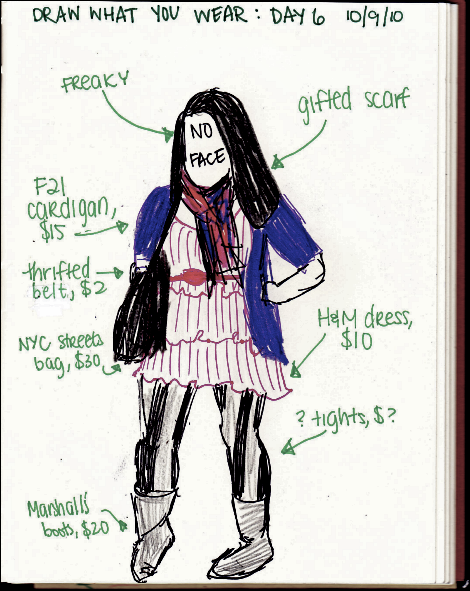 DRAW WHAT YOU WEAR: DAY 6 10/9/10
FREAKY
gifted scarf
NO
FACE
F21
cardigan,
$15
thrifted
belt, $2
NYC streets
bag, $30
H&M dress,
$10
? tights, $?
Marshall's
boots, $20